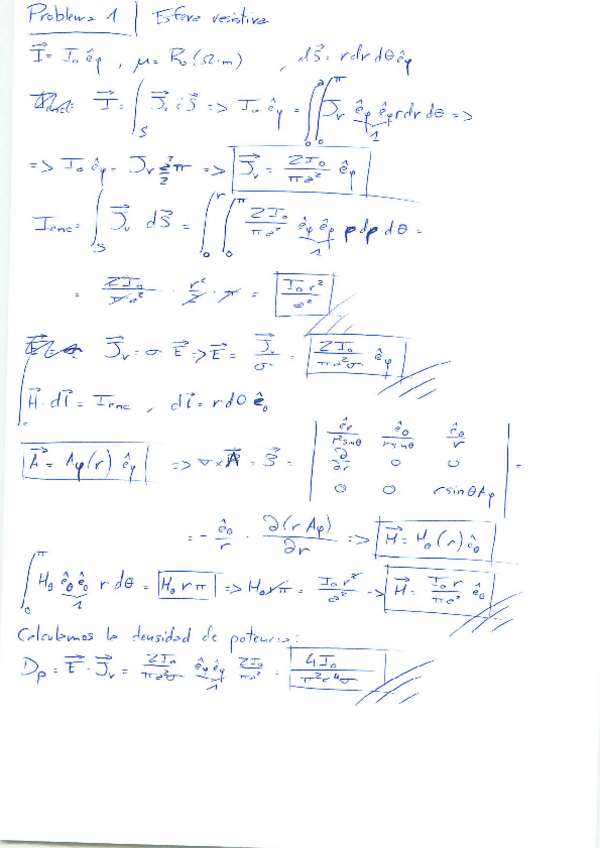 Problema 1 | Esfera resistiva
I⃗ = I₀ ê_φ , μ = R₀ (Ω·m) , dS⃗ = r dr dθ ê_φ
I⃗ = ∫_S J⃗_v dS⃗ => I₀ ê_φ = ∫₀^a ∫₀^π J_v ê_φ ê_φ r dr dθ =>
1
=> I₀ ê_φ = J_v a²/2 π => J⃗_v = 2I₀/(πa²) ê_φ
I_enc = ∫_S J⃗_v dS⃗ = ∫₀^r ∫₀^π 2I₀/(πa²) ê_φ ê_φ ρ dρ dθ =
1
= 2I₀/(πa²) · r²/2 · π = I₀ r²/a²
J⃗_v = σ E⃗ => E⃗ = J⃗_v/σ = 2I₀/(πa²σ) ê_φ
∫ H⃗·dl⃗ = I_enc , dl⃗ = r dθ ê_θ
A⃗ = A_φ(r) ê_φ => ∇×A⃗ = B⃗ = | ê_r/(r² sinθ) ê_θ/(r sinθ) ê_φ/r | =
| ∂/∂r 0 0 |
| 0 0 r sinθ A_φ |
= - ê_θ/r · ∂(r A_φ)/∂r => H⃗ = H_θ(r) ê_θ
∫₀^π H_θ ê_θ ê_θ r dθ = H_θ r π => H_θ r π = I₀ r²/a² -> H⃗ = I₀ r/(πa²) ê_θ
1
Calculamos la densidad de potencia:
D_p = E⃗ · J⃗_v = 2I₀/(πa²σ) ê_φ ê_φ 2I₀/(πa²) = 4I₀/(π²a⁴σ)
1